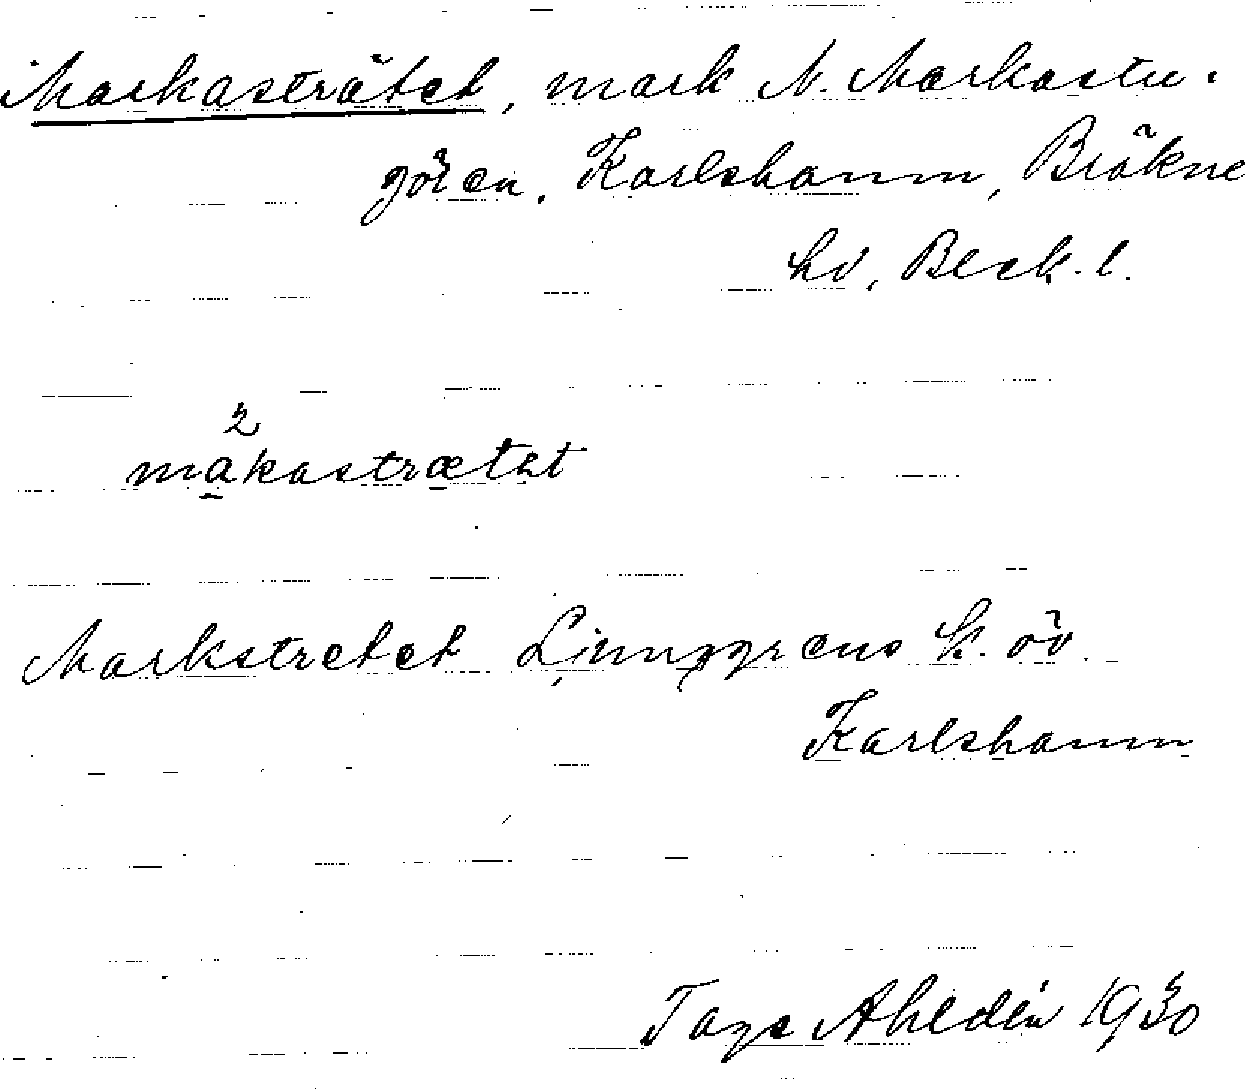 Markasträtet, mark N. Markastu-
gören, Karlshamn, Bräkne
hd, Bleck. l.
2
måkastrætət
Markstretet Ljunggrens k. öv
Karlshamn
Tage Ahldén 1930